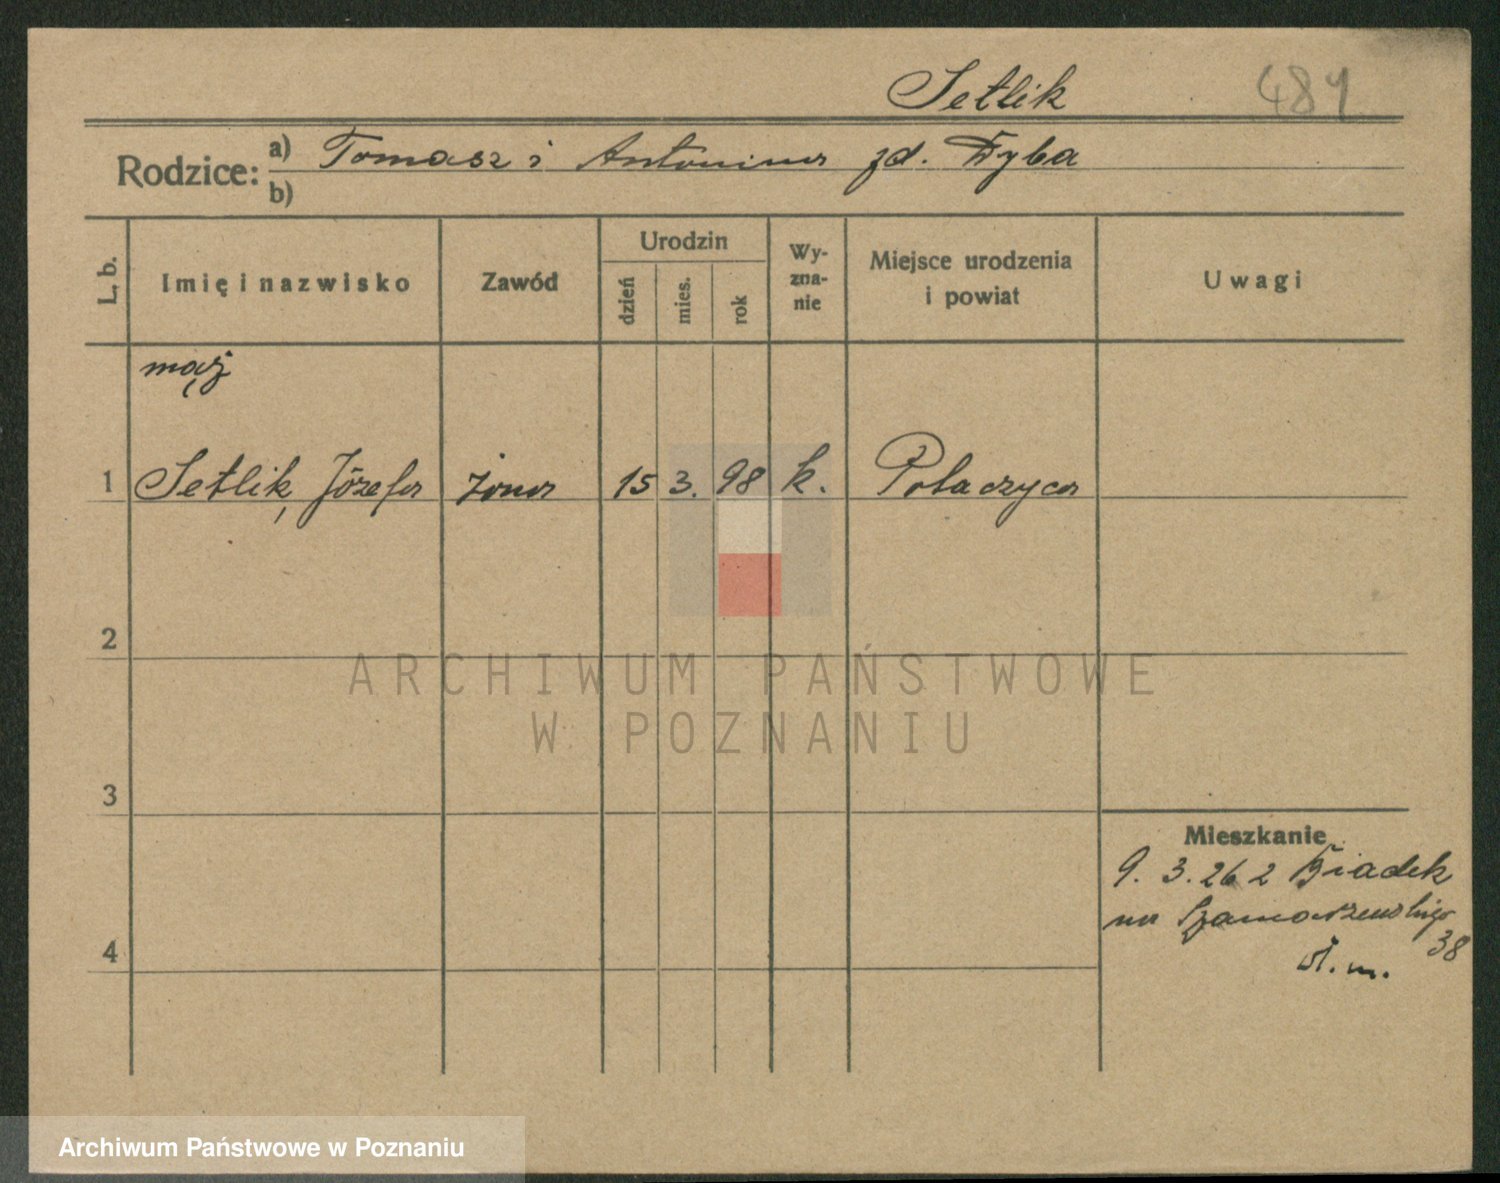 Setlik 481
Rodzice: a) Tomasz i Antonina zd. Dyba
b)
L. b. Imię i nazwisko Zawód Urodzin dzień mies. rok Wy-zna-nie Miejsce urodzenia i powiat Uwagi
mąż
1 Setlik, Józefa żona 15 3. 98 k. Połaczyca
2
ARCHIWUM PAŃSTWOWE
W POZNANIU
3
Mieszkanie
9. 3. 26 z Biadek
na Szamarzewskiego
38
4
Archiwum Państwowe w Poznaniu